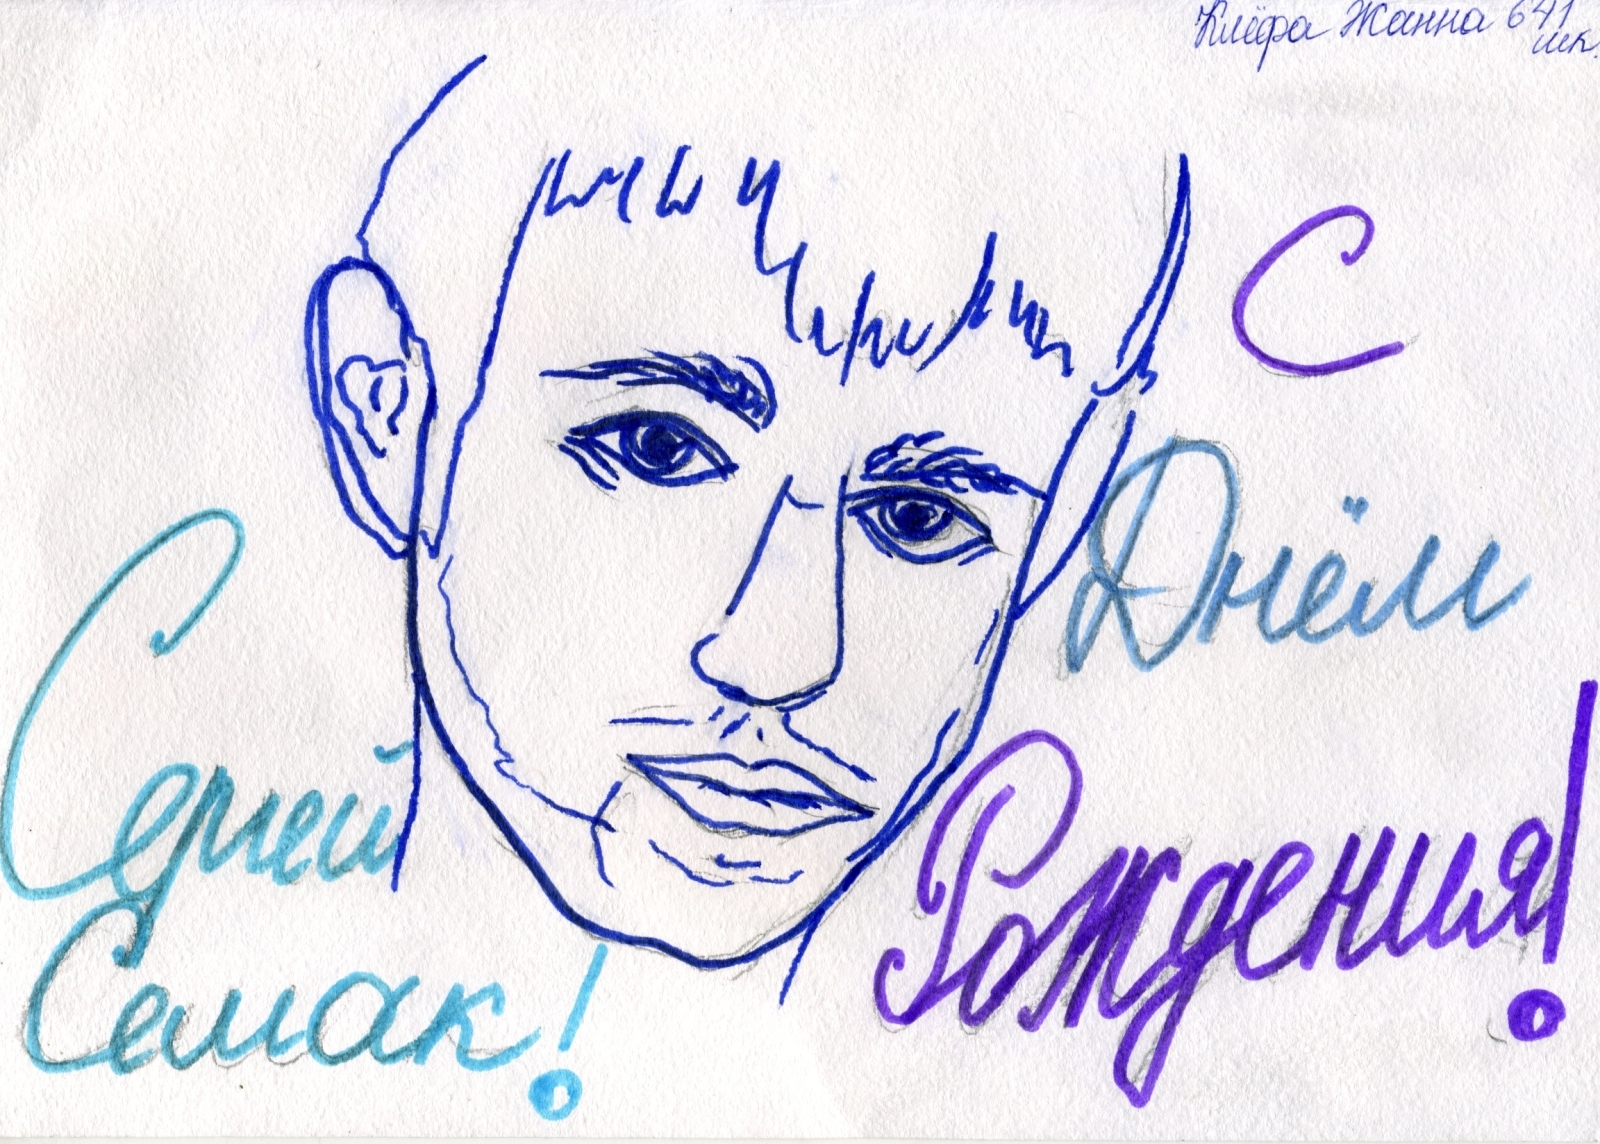 Клёфа Жанна 641
шк.
С
Днём
Рождения!
Сергей
Семак!